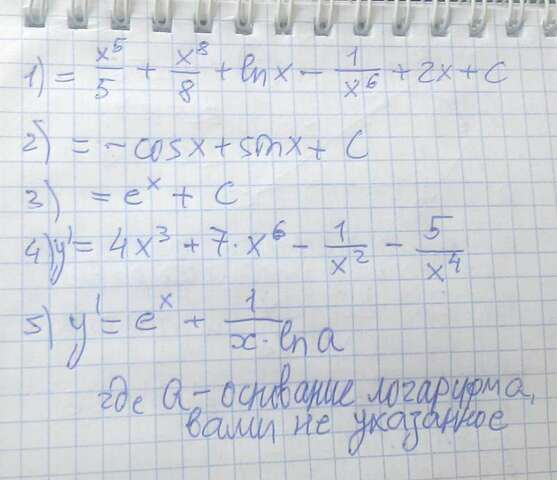 1) = x⁵/5 + x⁸/8 + ln x - 1/x⁶ + 2x + C
2) = - cosx + sinx + C
3) = eˣ + C
4) y' = 4x³ + 7·x⁶ - 1/x² - 5/x⁴
5) y' = eˣ + 1/(x·ln a)
где a - основание логарифма,
вами не указанное